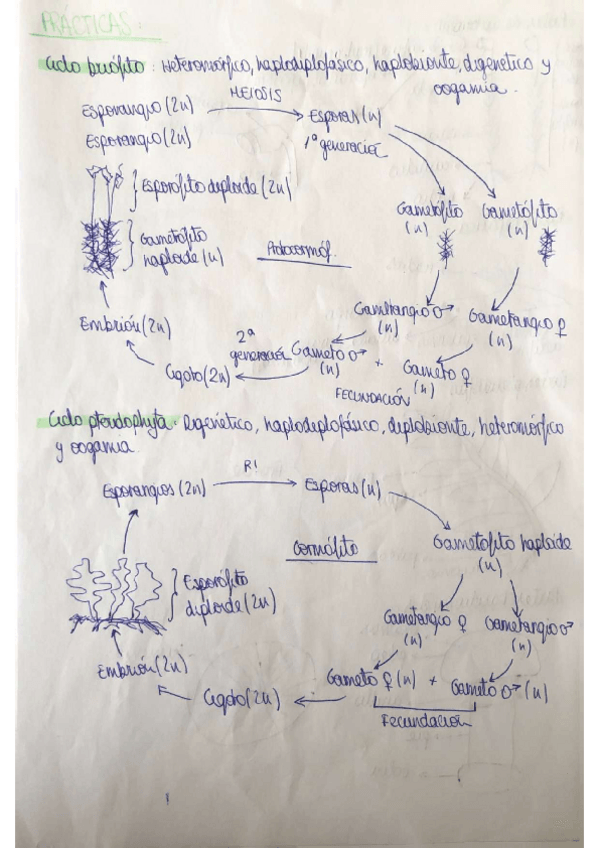 PRÁCTICAS:
Ciclo briófito: Heteromórfico, haplodiplofásico, haplobionte, digenético y
oogamia.
Esporangio (2n) MEIOSIS Esporas (n)
Esporangio (2n) 1ª generación
Esporófito diploide (2n)
Gametófito haploide (n)
Protocormóf.
Gametófito (n) Gametófito (n)
Gametangio ♂ (n) Gametangio ♀ (n)
Embrión (2n)
2ª generación Gameto ♂ (n) + Gameto ♀ (n)
Cigoto (2n)
FECUNDACIÓN
Ciclo pteridophyta: Digenético, haplodiplofásico, diplobionte, heteromórfico
y oogamia
Esporangios (2n) R! Esporas (n)
Cormófito
Gametófito haploide (n)
Esporófito diploide (2n)
Gametangio ♀ (n) Gametangio ♂ (n)
Embrión (2n)
Cigoto (2n) Gameto ♀ (n) + Gameto ♂ (n)
Fecundación